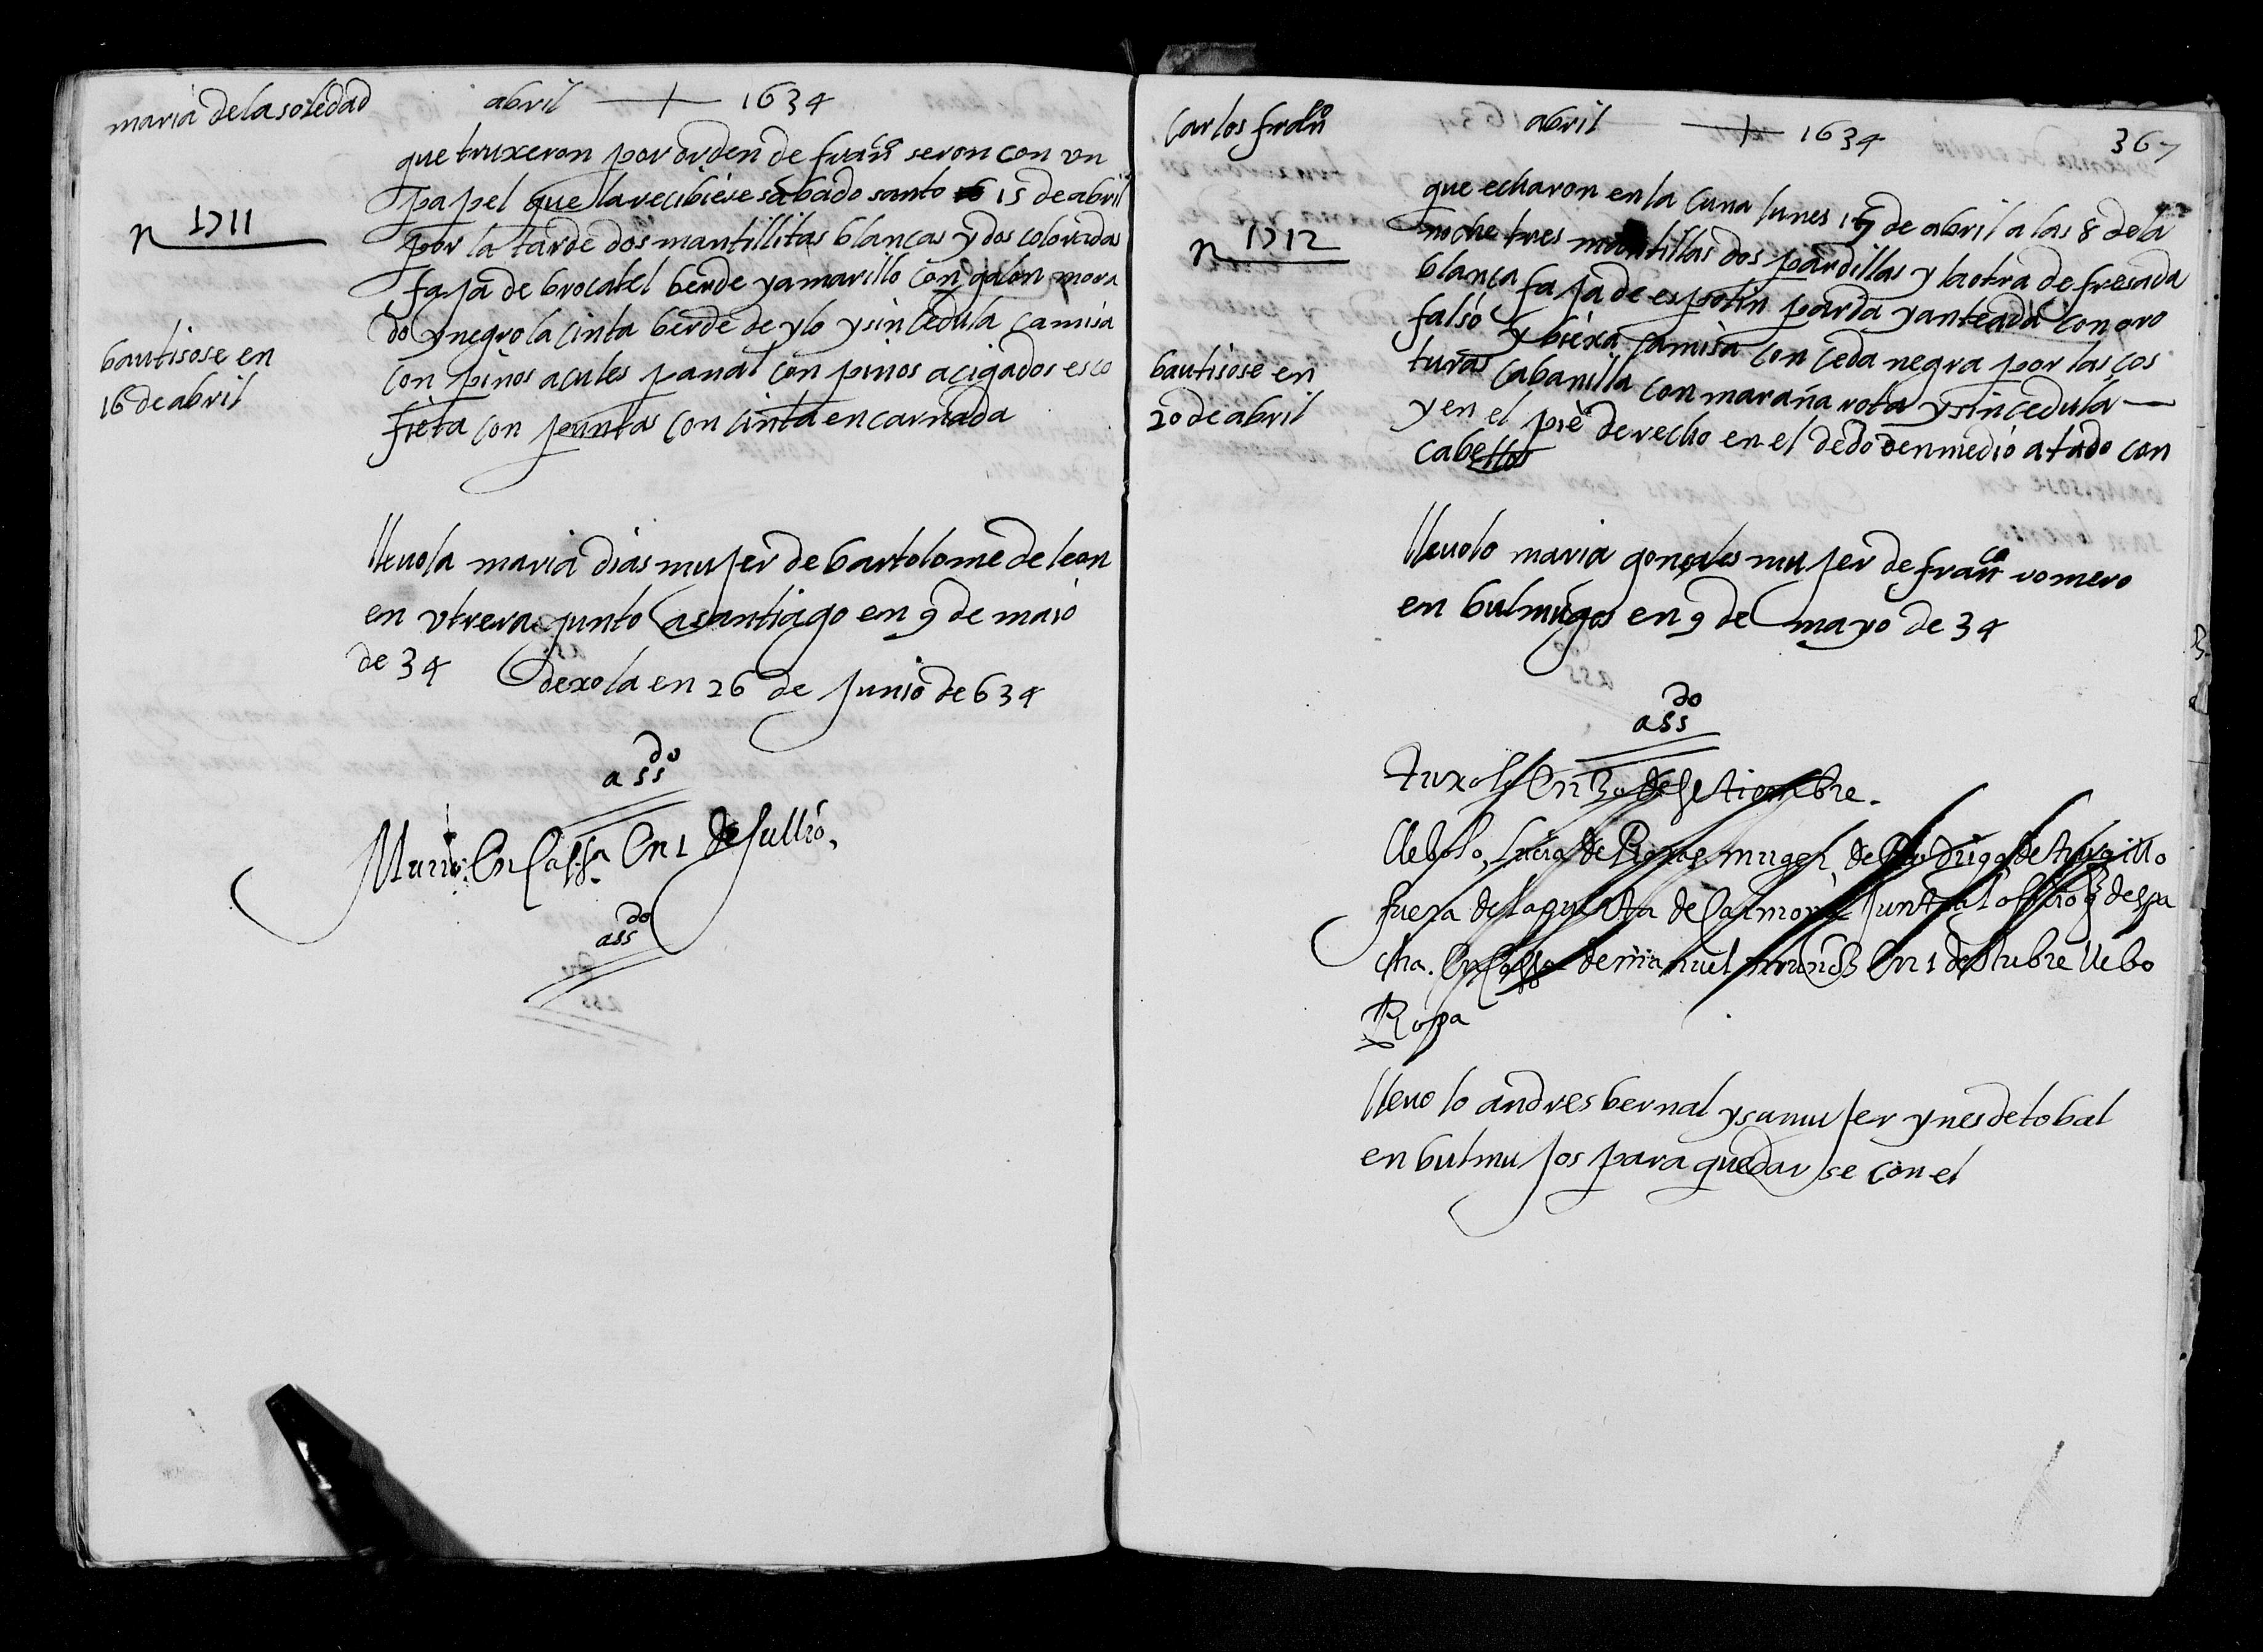 maria de la soledad
abril + 1634
que truxeron por orden de franco seron con un
papel que la recibiese sabado santo 15 de abril
por la tarde dos mantillitas blancas y dos coloradas
faja de brocatel berde y amarillo con galon mora
do y negro la cinta berde de ylo y sin cedula camisa
con pinos acules panal con pinos acigados esco
fieta con puntas con cinta encarnada
n 1711
bautisose en
16 de abril
lleuola maria dias mujer de bartolome de leon
en utrera junto a santiago en 9 de maio
de 34 dexola en 26 de junio de 634
assdo
Murio en cassa en 1 de jullio,
assdo
carlos franco
abril + 1634
367
que echaron en la cuna lunes 17 de abril a las 8 de la
noche tres mantillas dos pardillas y la otra de fresada
blanca faja de espolin parda y anteada con oro
falso y biexa camisa con ceda negra por las cos
turas cabanilla con maraña rota y sin cedula
y en el pie derecho en el dedo denmedio atado con
cabellos
n 1712
bautisose en
20 de abril
lleuolo maria gonçales mujer de franco romero
en bulmugos en 9 de mayo de 34
assdo
tuxolo en 30 de setiembre.
llebolo, lucia de Roxas muger de Rodrigo de trugillo
fuera de la puerta de carmona junto al
cha. en cassa de manuel nunes en 1 de otubre llebo
Ropa
lleuolo andres bernal y su mujer ynes de tobal
en bulmujos para quedarse con el